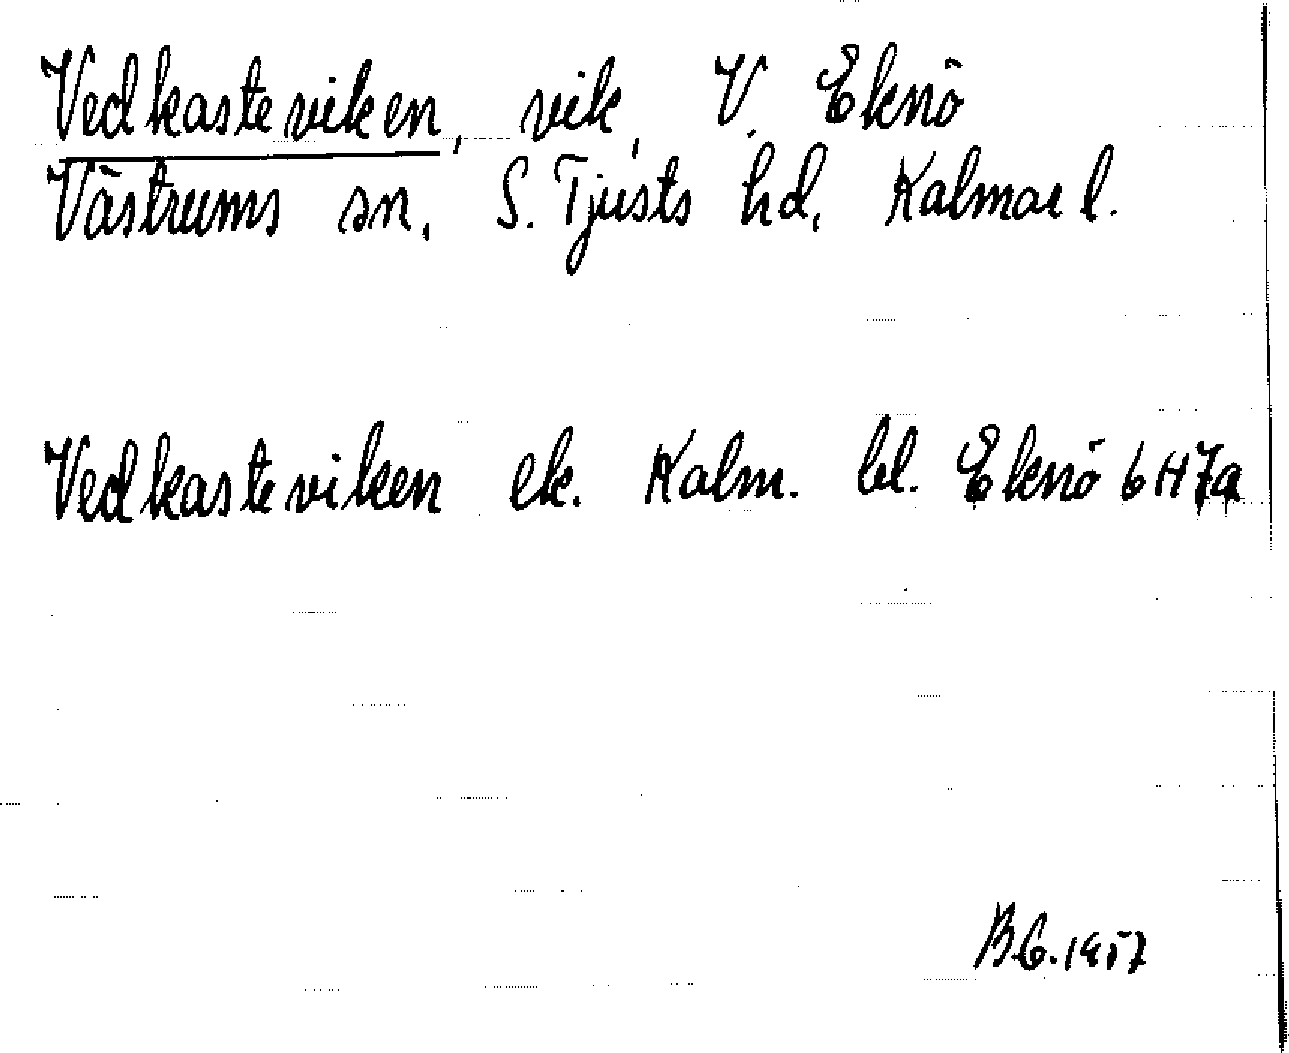 Vedkasteviken, vik, V. Eknö
Västrums sn, S. Tjusts hd, Kalmar l.
Vedkasteviken ek. Kalm. bl. Eknö 6H7a
B.G. 1957